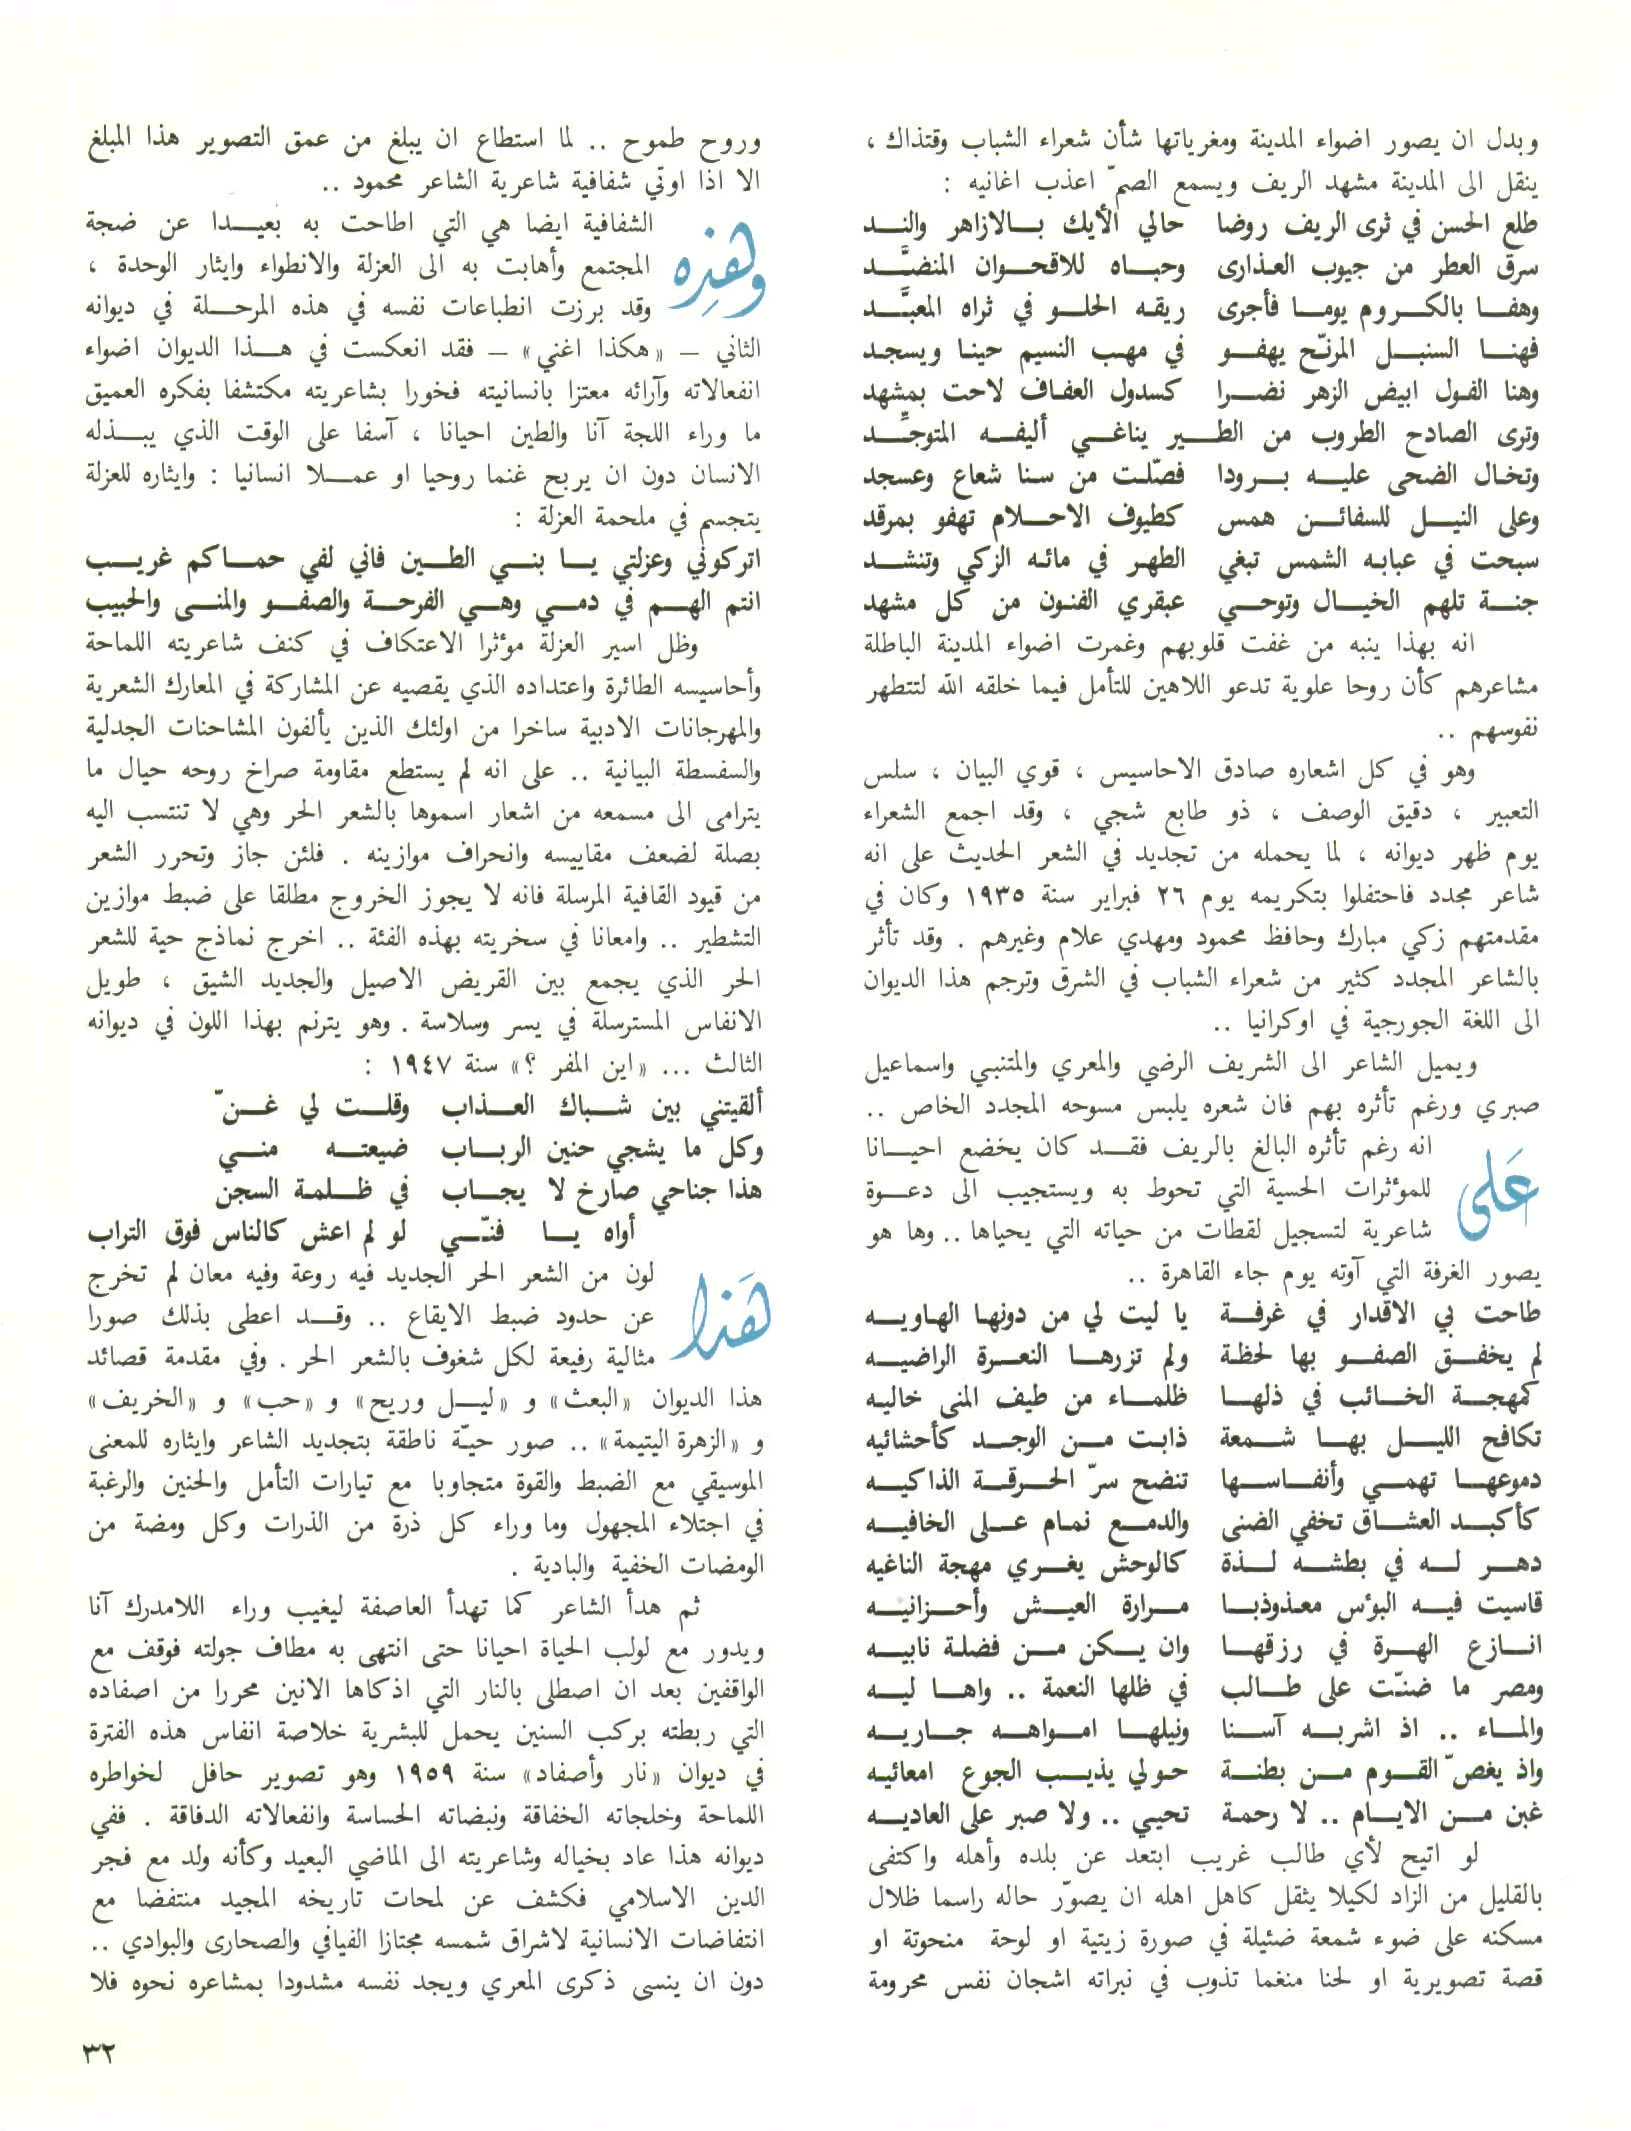 وبدل ان يصور اضواء المدينة ومغرياتها شأن شعراء الشباب وقتذاك ،
ينقل الى المدينة مشهد الريف ويسمع الصمّ اعذب اغانيه :
طلع الحسن في ثرى الريف روضا حالي الأيك بالازاهر والند
سرق العطر من جيوب العذارى وحباه للاقحوان المنضَّد
وهفا بالكروم يوما فأجرى ريقه الحلو في ثراه المعبَّد
فهنا السنبل المرنّح يهفو في مهب النسيم حينا ويسجد
وهنا الفول ابيض الزهر نضرا كسدول العفاف لاحت بمشهد
وترى الصادح الطروب من الطير يناغي أليفه المتوجِّد
وتخال الضحى عليه برودا فصّلت من سنا شعاع وعسجد
وعلى النيل للسفائن همس كطيوف الاحلام تهفو بمرقد
سبحت في عبابه الشمس تبغي الطهر في مائه الزكي وتنشد
جنة تلهم الخيال وتوحي عبقري الفنون من كل مشهد
انه بهذا ينبه من غفت قلوبهم وغمرت اضواء المدينة الباطلة
مشاعرهم كأن روحا علوية تدعو اللاهين للتأمل فيما خلقه الله لتتطهر
نفوسهم ..
وهو في كل اشعاره صادق الاحاسيس ، قوي البيان ، سلس
التعبير ، دقيق الوصف ، ذو طابع شجي ، وقد اجمع الشعراء
يوم ظهر ديوانه ، لما يحمله من تجديد في الشعر الحديث على انه
شاعر مجدد فاحتفلوا بتكريمه يوم ٢٦ فبراير سنة ١٩٣٥ وكان في
مقدمتهم زكي مبارك وحافظ محمود ومهدي علام وغيرهم . وقد تأثر
بالشاعر المجدد كثير من شعراء الشباب في الشرق وترجم هذا الديوان
الى اللغة الجورجية في اوكرانيا ..
ويميل الشاعر الى الشريف الرضي والمعري والمتنبي واسماعيل
صبري ورغم تأثره بهم فان شعره يلبس مسوحه المجدد الخاص ..
عَلى انه رغم تأثره البالغ بالريف فقد كان يخضع احيانا
للمؤثرات الحسية التي تحوط به ويستجيب الى دعوة
شاعرية لتسجيل لقطات من حياته التي يحياها .. وها هو
يصور الغرفة التي آوته يوم جاء القاهرة ..
طاحت بي الاقدار في غرفة يا ليت لي من دونها الهاويه
لم يخفق الصفو بها لحظة ولم تزرها النعرة الراضيه
كمهجة الخائب في ذلها ظلماء من طيف المنى خاليه
تكافح الليل بها شمعة ذابت من الوجد كأحشائيه
دموعها تهمي وأنفاسها تنضح سرّ الحرقة الذاكيه
كأكبد العشاق تخفي الضنى والدمع نمام على الخافيه
دهر له في بطشه لذة كالوحش يغري مهجة الناغيه
قاسيت فيه البؤس معذوذبا مرارة العيش وأحزانيه
انازع الهرة في رزقها وان يكن من فضلة نابيه
ومصر ما ضنّت على طالب في ظلها النعمة .. واها ليه
والماء .. اذ اشربه آسنا ونيلها امواهه جاريه
واذ يغصّ القوم من بطنة حولي يذيب الجوع امعائيه
غبن من الايام .. لا رحمة تحيي .. ولا صبر على العاديه
لو اتيح لأي طالب غريب ابتعد عن بلده وأهله واكتفى
بالقليل من الزاد لكيلا يثقل كاهل اهله ان يصوّر حاله راسما ظلال
مسكنه على ضوء شمعة ضئيلة في صورة زيتية او لوحة منحوتة او
قصة تصويرية او لحنا منغما تذوب في نبراته اشجان نفس محرومة
وروح طموح .. لما استطاع ان يبلغ من عمق التصوير هذا المبلغ
الا اذا اوتي شفافية شاعرية الشاعر محمود ..
وهٰذِه الشفافية ايضا هي التي اطاحت به بعيدا عن ضجة
المجتمع وأهابت به الى العزلة والانطواء وايثار الوحدة ،
وقد برزت انطباعات نفسه في هذه المرحلة في ديوانه
الثاني – «هكذا اغني» – فقد انعكست في هذا الديوان اضواء
انفعالاته وآرائه معتزا بانسانيته فخورا بشاعريته مكتشفا بفكره العميق
ما وراء اللجة آنا والطين احيانا ، آسفا على الوقت الذي يبذله
الانسان دون ان يربح غنما روحيا او عملا انسانيا : وايثاره للعزلة
يتجسم في ملحمة العزلة :
اتركوني وعزلتي يا بني الطين فاني لفي حماكم غريب
انتم الهم في دمي وهي الفرحة والصفو والمنى والحبيب
وظل اسير العزلة مؤثرا الاعتكاف في كنف شاعريته اللماحة
وأحاسيسه الطائرة واعتداده الذي يقصيه عن المشاركة في المعارك الشعرية
والمهرجانات الادبية ساخرا من اولئك الذين يألفون المشاحنات الجدلية
والسفسطة البيانية .. على انه لم يستطع مقاومة صراخ روحه حيال ما
يترامى الى مسمعه من اشعار اسموها بالشعر الحر وهي لا تنتسب اليه
بصلة لضعف مقاييسه وانحراف موازينه . فلئن جاز وتحرر الشعر
من قيود القافية المرسلة فانه لا يجوز الخروج مطلقا على ضبط موازين
التشطير .. وامعانا في سخريته بهذه الفئة .. اخرج نماذج حية للشعر
الحر الذي يجمع بين القريض الاصيل والجديد الشيق ، طويل
الانفاس المسترسلة في يسر وسلاسة . وهو يترنم بهذا اللون في ديوانه
الثالث ... «اين المفر ؟» سنة ١٩٤٧ :
ألقيتني بين شباك العذاب وقلت لي غنّ
وكل ما يشجي حنين الرباب ضيعته مني
هذا جناحي صارخ لا يجاب في ظلمة السجن
أواه يا فنّي لو لم اعش كالناس فوق التراب
هَذا لون من الشعر الحر الجديد فيه روعة وفيه معان لم تخرج
عن حدود ضبط الايقاع .. وقد اعطى بذلك صورا
مثالية رفيعة لكل شغوف بالشعر الحر . وفي مقدمة قصائد
هذا الديوان «البعث» و «ليل وريح» و «حب» و «الخريف»
و «الزهرة اليتيمة» .. صور حيّة ناطقة بتجديد الشاعر وايثاره للمعنى
الموسيقي مع الضبط والقوة متجاوبا مع تيارات التأمل والحنين والرغبة
في اجتلاء المجهول وما وراء كل ذرة من الذرات وكل ومضة من
الومضات الخفية والبادية .
ثم هدأ الشاعر كما تهدأ العاصفة ليغيب وراء اللامدرك آنا
ويدور مع لولب الحياة احيانا حتى انتهى به مطاف جولته فوقف مع
الواقفين بعد ان اصطلى بالنار التي اذكاها الانين محررا من اصفاده
التي ربطته بركب السنين يحمل للبشرية خلاصة انفاس هذه الفترة
في ديوان «نار وأصفاد» سنة ١٩٥٩ وهو تصوير حافل لخواطره
اللماحة وخلجاته الخفاقة ونبضاته الحساسة وانفعالاته الدفاقة . ففي
ديوانه هذا عاد بخياله وشاعريته الى الماضي البعيد وكأنه ولد مع فجر
الدين الاسلامي فكشف عن لمحات تاريخه المجيد منتفضا مع
انتفاضات الانسانية لاشراق شمسه مجتازا الفيافي والصحارى والبوادي ..
دون ان ينسى ذكرى المعري ويجد نفسه مشدودا بمشاعره نحوه فلا
٣٢